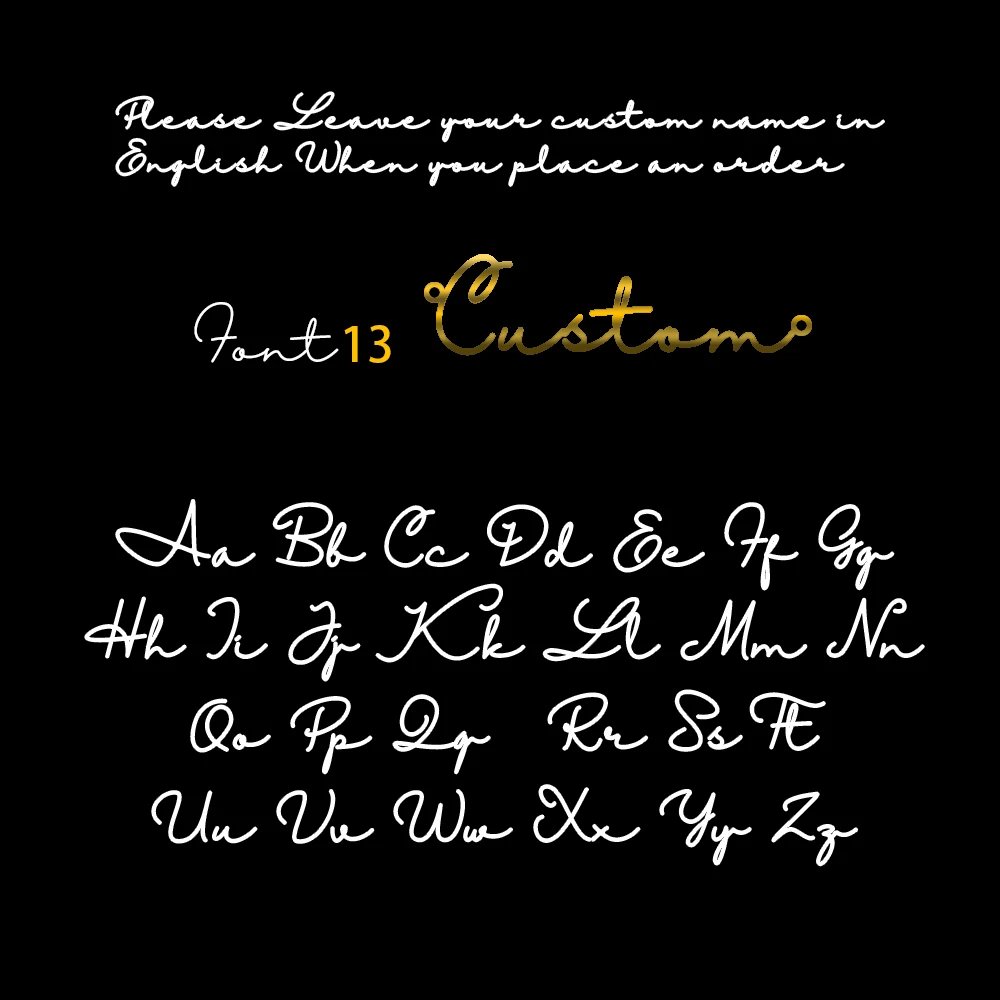 Please Leave your custom name in
English When you place an order
Font 13 Custom
Aa Bb Cc Dd Ee Ff Gg
Hh Ii Jj Kk Ll Mm Nn
Oo Pp Qq Rr Ss Tt
Uu Vv Ww Xx Yy Zz